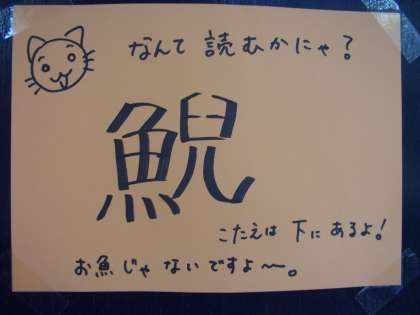 なんて 読むかにゃ？
鯢
こたえは 下に あるよ！
お魚じゃ ないですよ〜。